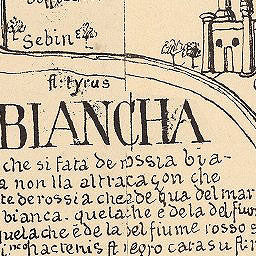 Sebin
fl: tyrus
BIANCHA
che si fata de rossia bia-
a non lla altra ca con che
te de rossia che e de qua del mar
bianca. quela che e de la del fiu
quela che e de la del fiume rosso s
hactenis fl negro